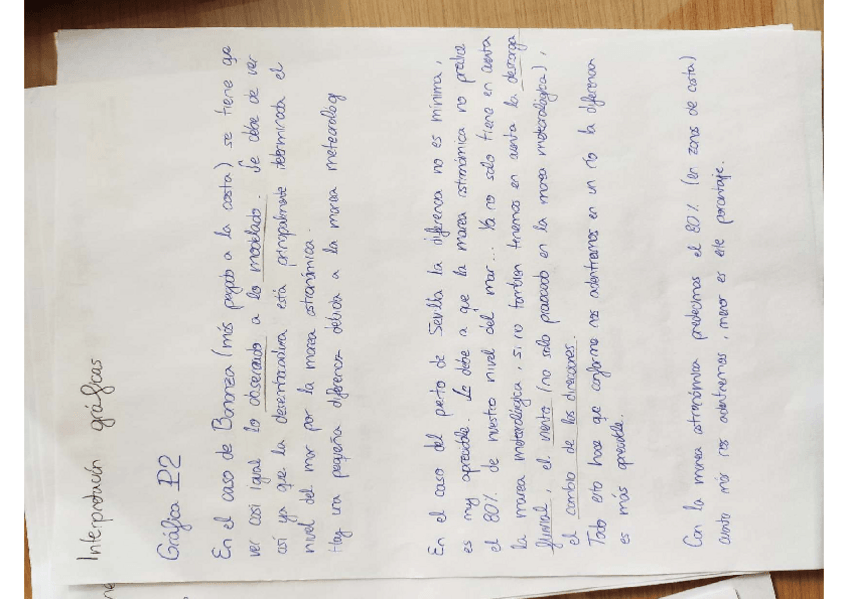 Interpretación gráficas
Gráfica P2
En el caso de Bonanza (más pegado a la costa) se tiene que
ver casi igual lo observado a lo modelado. Se debe de ver
así ya que la desembocadura está principalmente determinada el
nivel del mar por la marea astronómica.
Hay una pequeña diferencia debida a la marea meteorológ
En el caso del puerto de Sevilla la diferencia no es mínima,
es muy apreciable. Se debe a que la marea astronómica no predice
el 80% de nuestro nivel del mar... Ya no solo tiene en cuenta
la marea meteorológica, si no también tenemos en cuenta la descarga
fluvial, el viento (no solo provocado en la marea meteorológica),
el cambio de las direcciones.
Todo esto hace que conforme nos adentremos en un río la diferencia
es más apreciable.
Con la marea astronómica predecimos el 80% (en zonas de costa)
cuanto más nos adentremos, menor es este porcentaje.